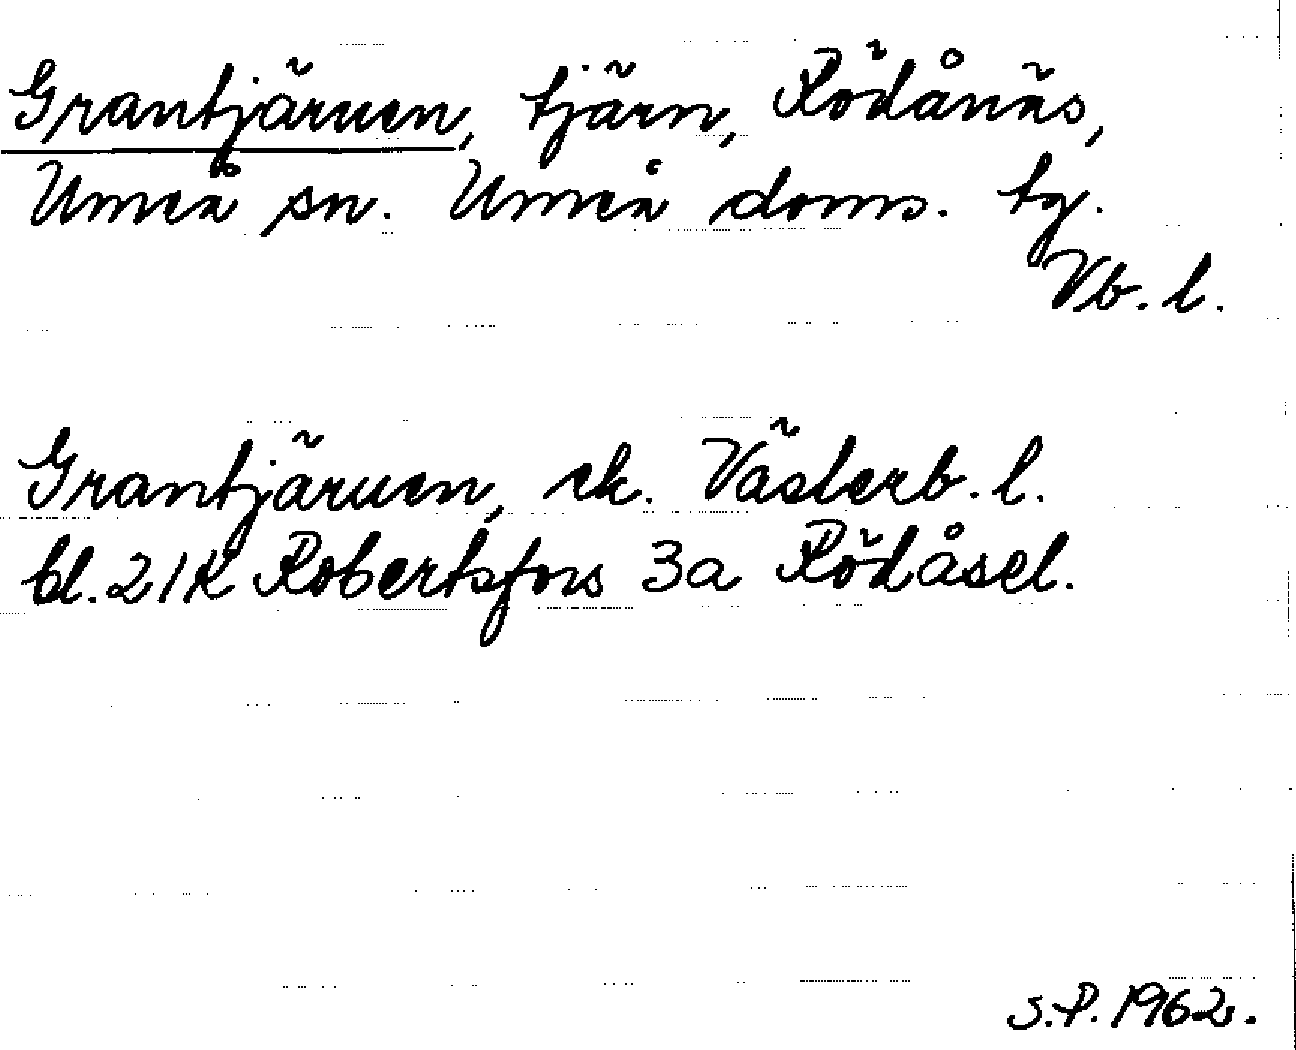 Grantjärnen, tjärn, Rödånäs,
Umeå sn. Umeå doms. tg.
Vb. l.
Grantjärnen, ek. Västerb. l.
bl. 21K Robertsfors 3a Rödåsel.
S.P. 1962.